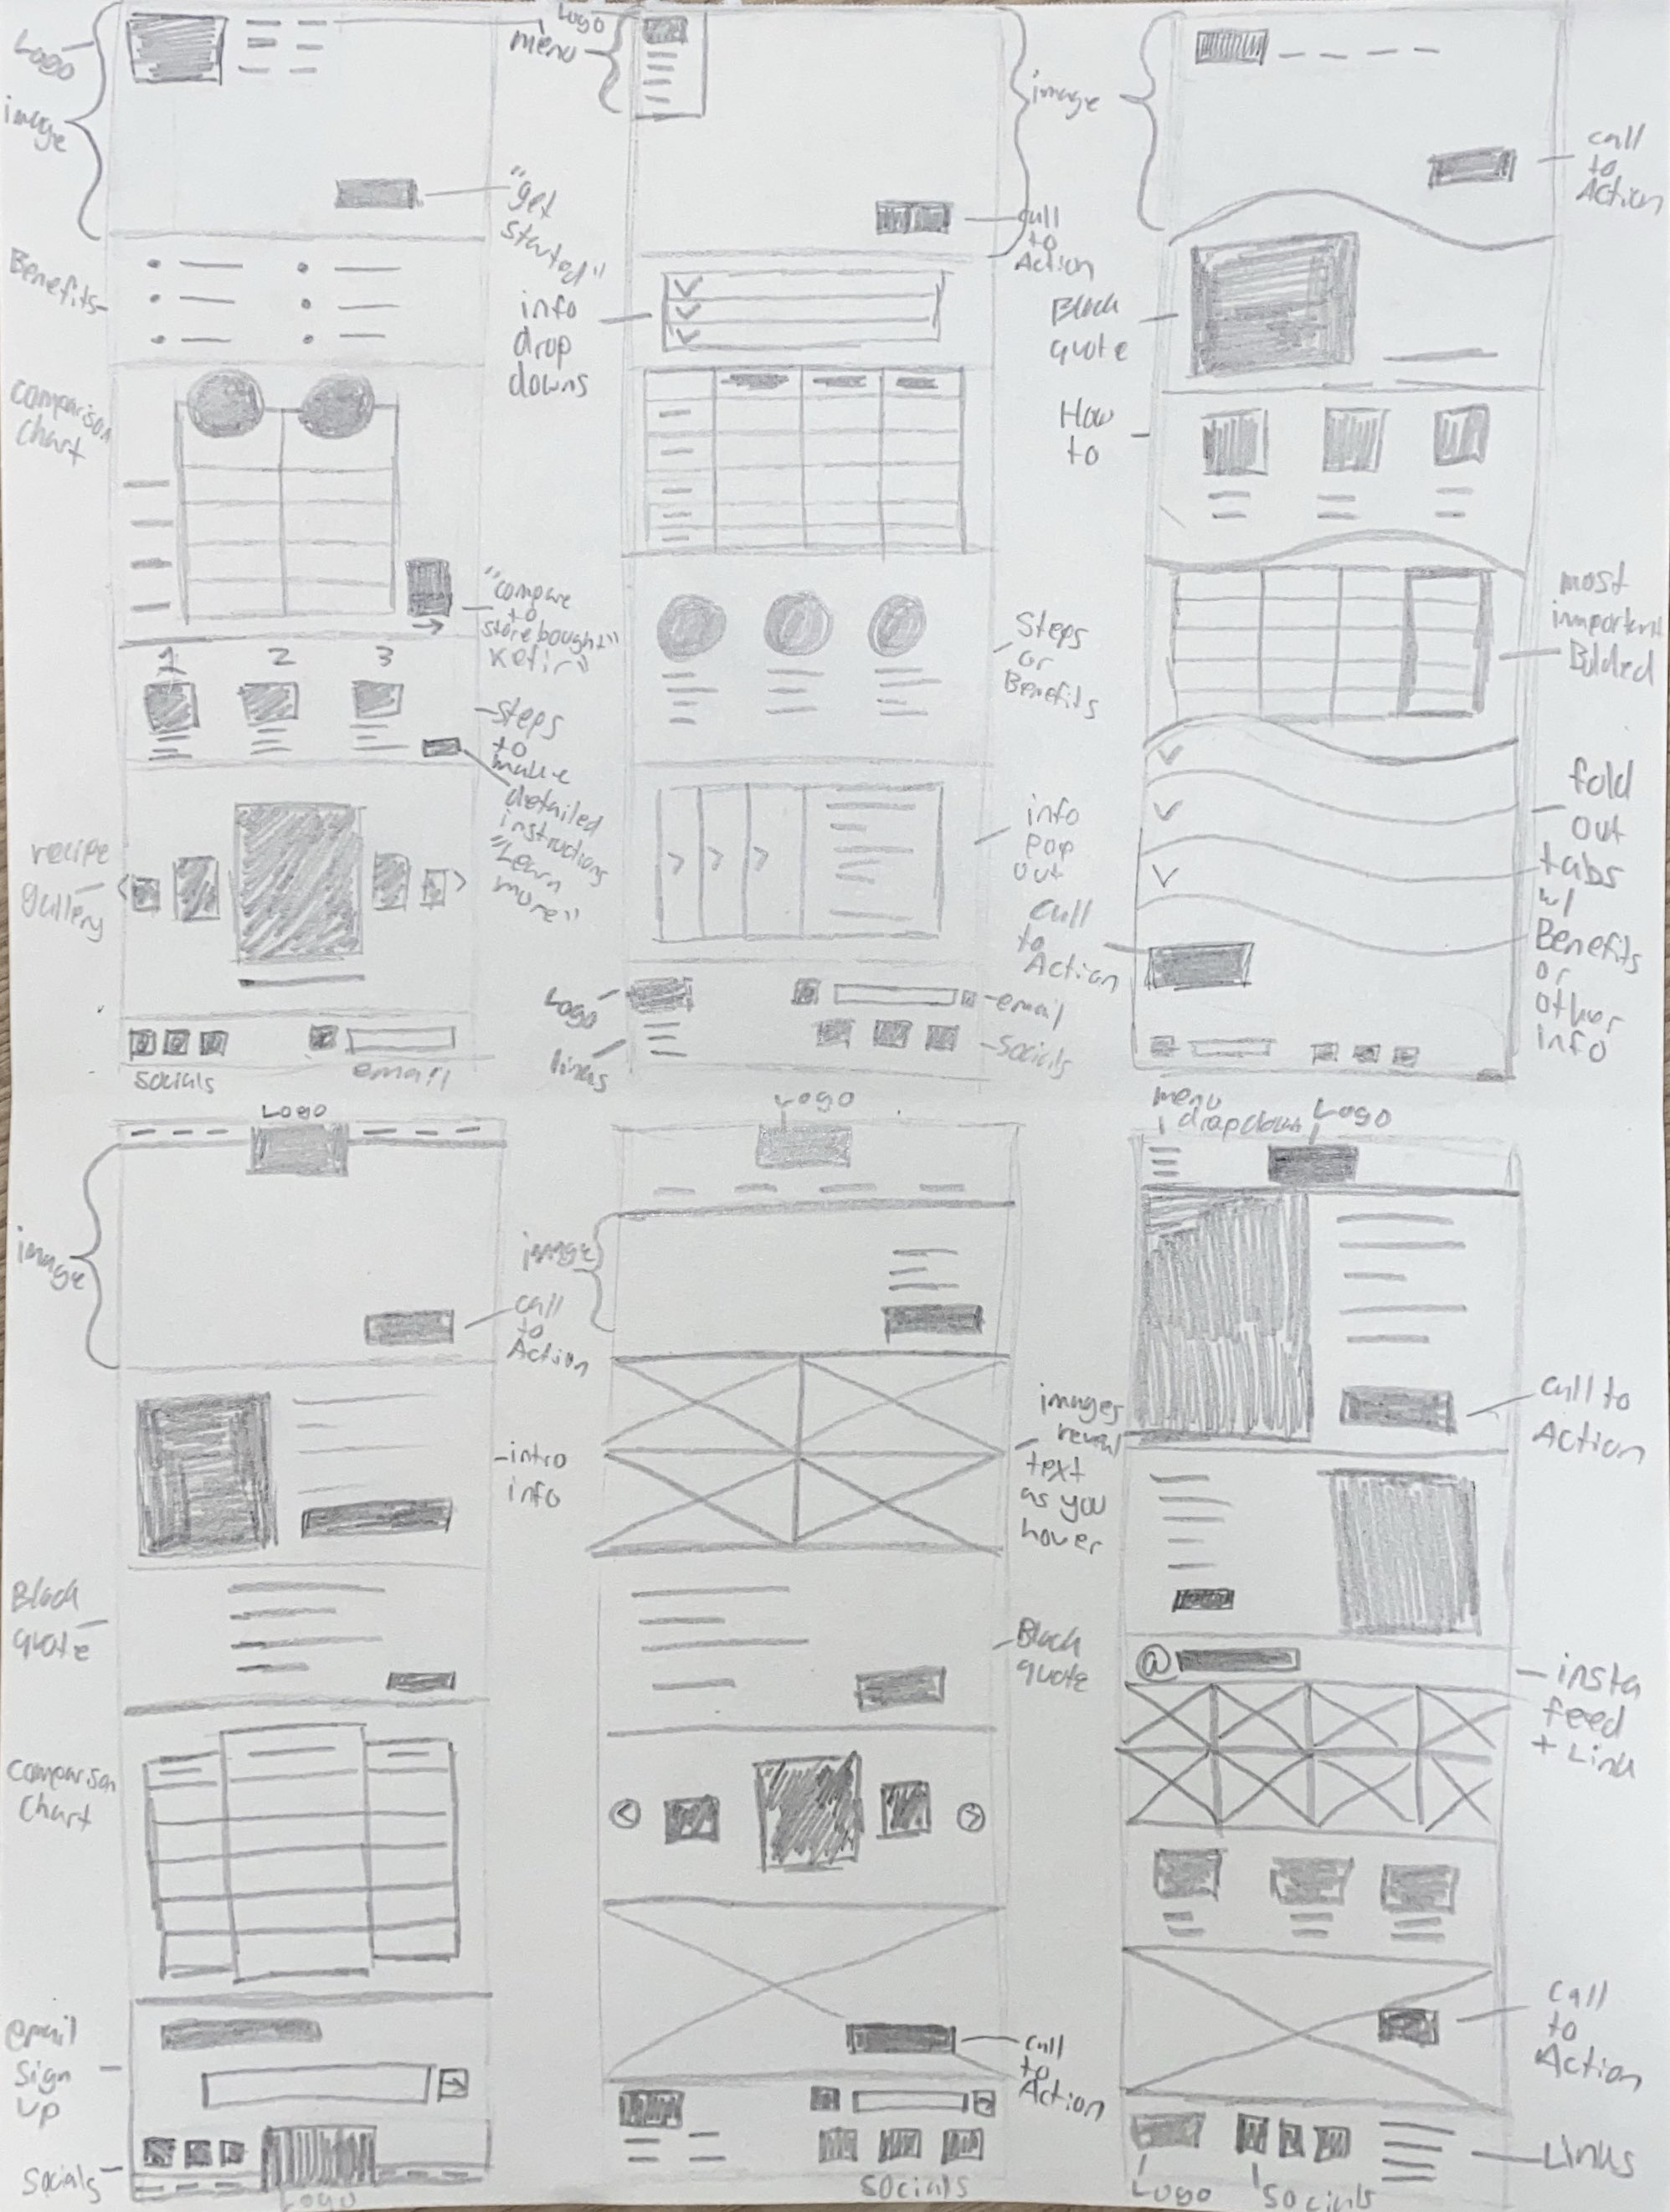 Logo
image
"get
started"
Benefits
comparison
chart
"compare
to
store bought"
Kefir"
1 2 3
Steps
to
make
detailed
instructions
"Learn
more"
recipe
gallery
socials
email
Logo
menu
image
call
to
Action
info
drop
downs
Steps
or
Benefits
info
pop
out
Logo
links
email
socials
call
to
Action
Block
quote
How
to
most
important
Bolded
fold
out
tabs
w/
Benefits
or
other
info
call
to
Action
Logo
image
call
to
Action
intro
info
Block
quote
comparison
chart
email
sign
up
socials
Logo
Logo
image
images
reveal
text
as you
hover
Block
quote
< >
call
to
Action
socials
menu
dropdown
Logo
call to
Action
@
insta
feed
+ Link
call
to
Action
Links
Logo
socials